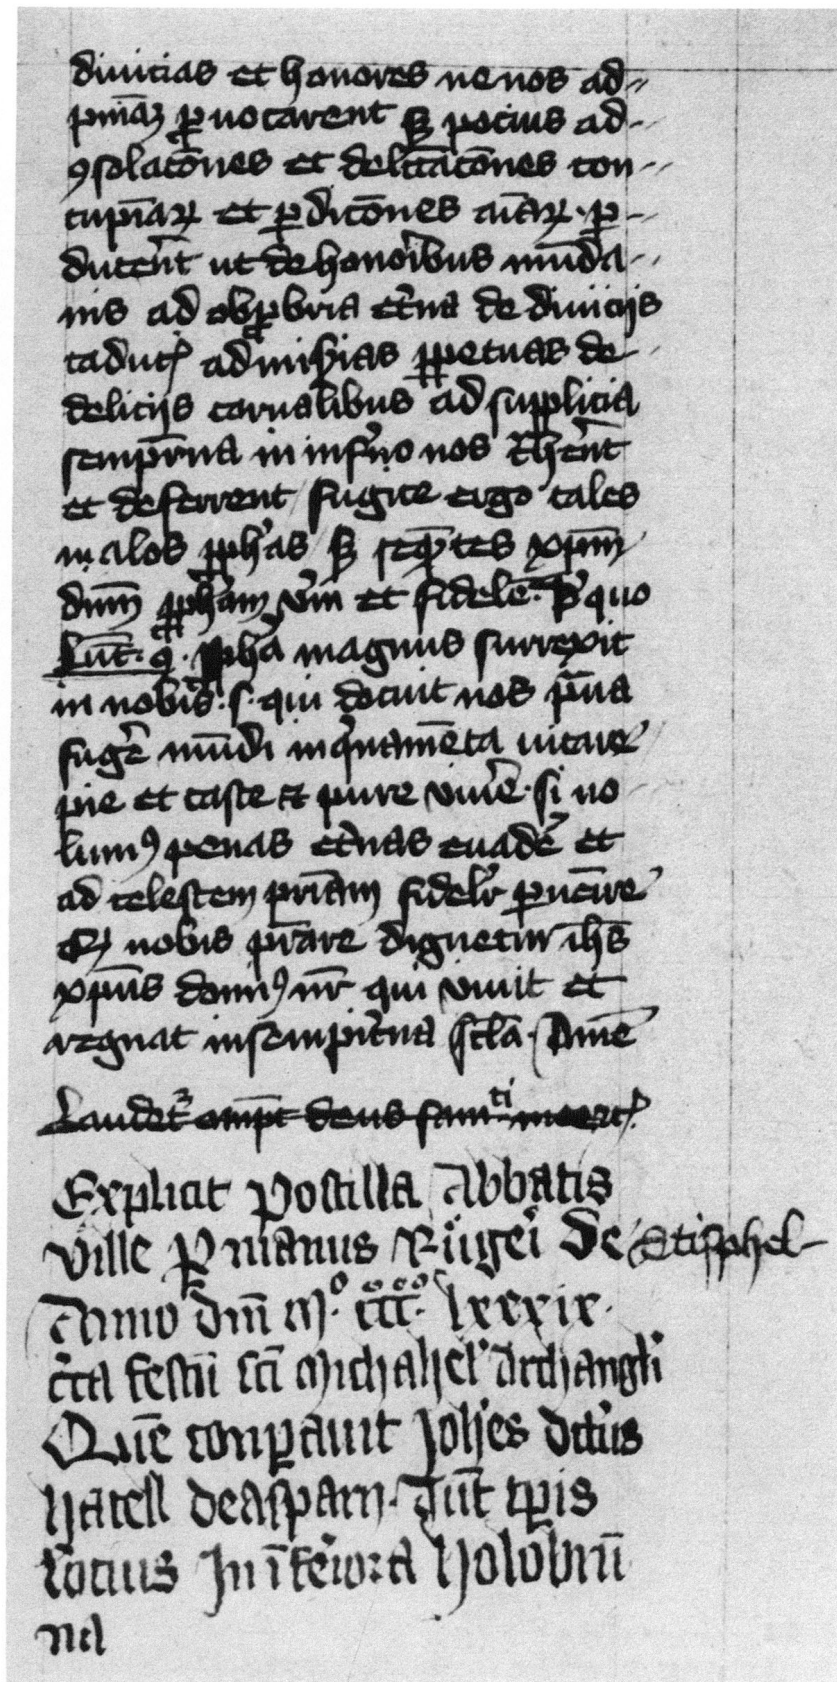 diuicias et honores ne nos ad//
pniaꝫ ꝓuocarent sꝫ pocius ad-
ꝯsolacōnes et delcācōnes con-
cupīaꝝ et ꝑdicōnes aīaꝝ · ꝑ-
ducerēt ut de honoribus mūda-
nis ad obꝓbria etͨna de diuicijs
caduc̣ ad misͥias ꝑpetuas de
delicijs carnalibus ad supplicia
sempit̄na in infͥno nos t̄herēt
et deferrent / fugite ergo tales
malos ꝓph̓as / sꝫ seqͣ̄tes xpm̄
dnm̄ ꝓph̓am v̓m et fidelē · de quo
Luc̄ · ꝓph̓a magnus surrexit
in nobis · s · qui docuit nos praua
fugͤe mūdi inqͥnamēta uitare
pie et caste et pure viuͤe · si uo-
lumꝰ penas et̓nas euadͤe et
ad celestem pr̄iam fidelr̄ ꝑuēire
Qꝫ nobis pr̄are dignetur ih̄s
xp̄us dominꝰ nr̄ qui viuit et
regnat in sempit̓na sc̄la · Amē
Laudet̓ omp̄t deus
Explicit postilla Abbatis
ville ꝑ manus Růgeͥi de Stisphel-
Anno dn̄i Mͦ · cͦcͦcͦ · lxxxix ·
cͥca festū sc̄i Michahel̓ Archangli
Quē conꝑauit Joh̄es dictͥus
Hacell de asparn · Tūc tp̄is
socius Jn īfeͥiora Holobrū
na